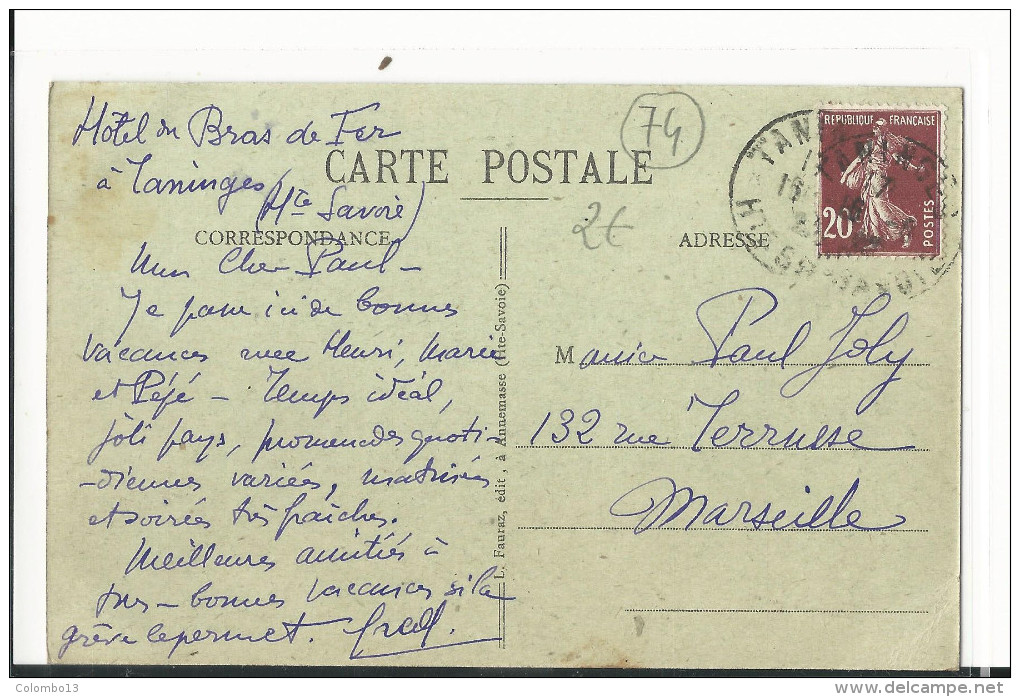 Hôtel du Bras de Fer
à Taninges
(Hte Savoie)
74
CARTE POSTALE
CORRESPONDANCE
2€
ADRESSE
REPUBLIQUE FRANÇAISE
20
POSTES
Mon Cher Paul –
Je passe ici de bonnes
vacances avec Henri, Marie
et Pépé – Temps idéal,
joli pays, promenades quoti-
-diennes variées, matinées
et soirées très fraîches.
Meilleures amitiés à
tous – bonnes vacances si la
grève le permet.
L. Fauraz, édit, à Annemasse (Hte-Savoie)
Paul Joly
132 rue Terrusse
Marseille
Colombo13
www.delcampe.net